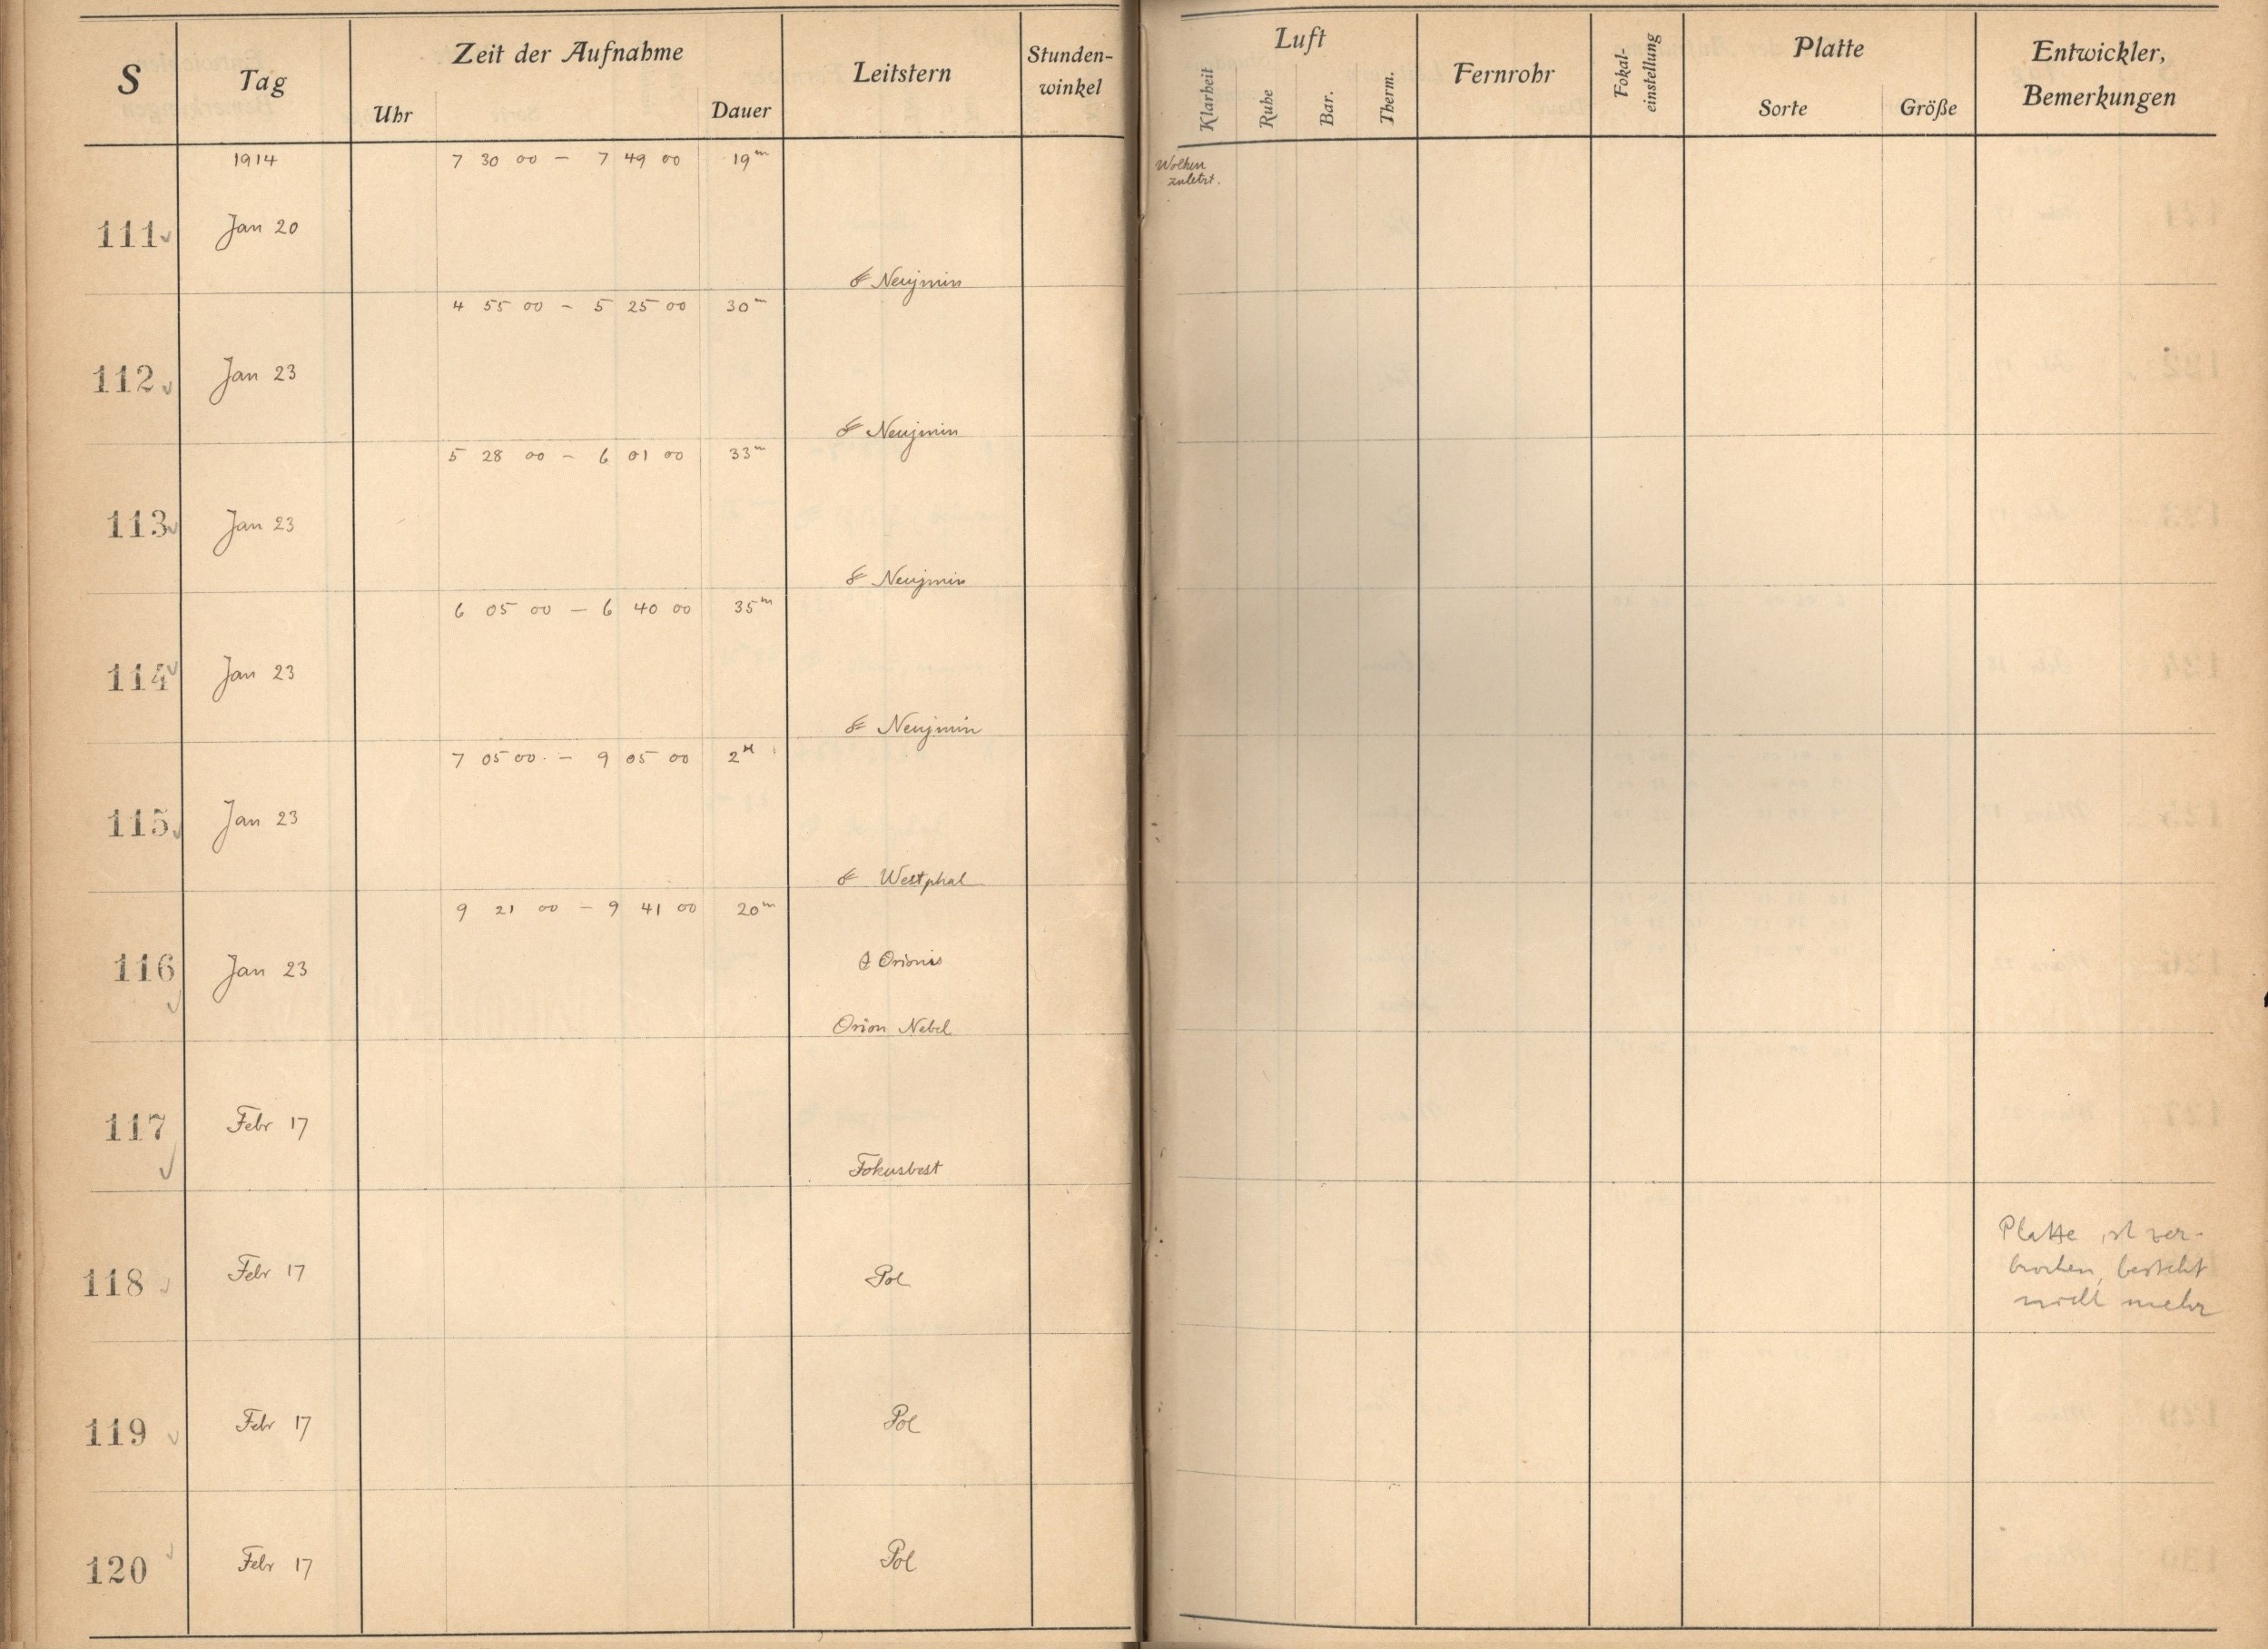 S Tag Zeit der Aufnahme Leitstern Stunden-winkel Luft Fernrohr Fokal-einstellung Platte Entwickler, Bemerkungen
Uhr Dauer Klarheit Ruhe Bar. Therm. Sorte Größe
1914 7 30 00 – 7 49 00 19m Wolken
zuletzt.
111 Jan 20
☄ Neujmin
4 55 00 – 5 25 00 30m
112 Jan 23
☄ Neujmin
5 28 00 – 6 01 00 33m
113 Jan 23
☄ Neujmin
6 05 00 – 6 40 00 35m
114 Jan 23
☄ Neujmin
7 05 00 – 9 05 00 2H
115 Jan 23
☄ Westphal
9 21 00 – 9 41 00 20m
116 Jan 23 Orionis
Orion Nebel
117 Febr 17
Fokusbest
118 Febr 17 Pol Platte ist zer-
brochen, besteht
nicht mehr
119 Febr 17 Pol
120 Febr 17 Pol